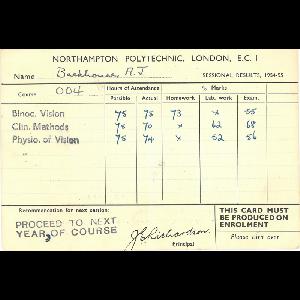 NORTHAMPTON POLYTECHNIC, LONDON, E.C. 1
Name Backhouse A.J SESSIONAL RESULTS, 1954-55
Course 004 Hours of Attendance % Marks
Possible Actual Homework Lab. work Exam.
Binoc. Vision 75 75 73 x 55
Clin. Methods 75 70 x 62 68
Physio. of Vision 75 74 x 52 56
Recommendation for next session:
PROCEED TO NEXT
YEAR OF COURSE
J S Richardson
Principal
THIS CARD MUST
BE PRODUCED ON
ENROLMENT
Please turn over